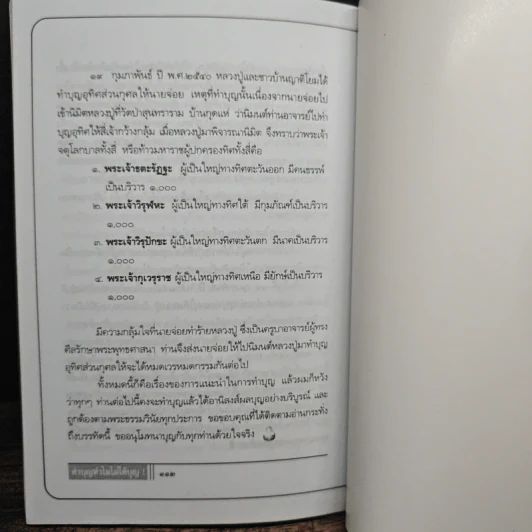 ๑๙ กุมภาพันธ์ ปี พ.ศ.๒๕๔๐ หลวงปู่และชาวบ้านญาติโยมได้
ทำบุญอุทิศส่วนกุศลให้นายจ่อย เหตุที่ทำบุญนั้นเนื่องจากนายจ่อยไป
เข้านิมิตหลวงปู่ที่วัดป่าสุนทราราม บ้านกุดแห่ ว่านิมนต์ท่านอาจารย์ไปทำ
บุญอุทิศให้สี่เจ้ากว้างกลุ้ม เมื่อหลวงปู่มาพิจารณานิมิต จึงทราบว่าพระเจ้า
จตุโลกบาลทั้งสี่ หรือท้าวมหาราชผู้ปกครองทิศทั้งสี่คือ
๑. พระเจ้าธตะรัฏฐะ ผู้เป็นใหญ่ทางทิศตะวันออก มีคนธรรพ์
เป็นบริวาร ๑,๐๐๐
๒. พระเจ้าวิรุฬหะ ผู้เป็นใหญ่ทางทิศใต้ มีกุมภัณฑ์เป็นบริวาร
๑,๐๐๐
๓. พระเจ้าวิรุปักขะ ผู้เป็นใหญ่ทางทิศตะวันตก มีนาคเป็นบริวาร
๑,๐๐๐
๔. พระเจ้ากุเวรุราช ผู้เป็นใหญ่ทางทิศเหนือ มียักษ์เป็นบริวาร
๑,๐๐๐
มีความกลุ้มใจที่นายจ่อยทำร้ายหลวงปู่ ซึ่งเป็นครูบาอาจารย์ผู้ทรง
ศีลรักษาพระพุทธศาสนา ท่านจึงส่งนายจ่อยให้ไปนิมนต์หลวงปู่มาทำบุญ
อุทิศส่วนกุศลให้จะได้หมดเวรหมดกรรมกันต่อไป
ทั้งหมดนี้ก็คือเรื่องของการแนะนำในการทำบุญ แล้วผมก็หวัง
ว่าทุกๆ ท่านต่อไปนี้คงจะทำบุญแล้วได้อานิสงส์ผลบุญอย่างบริบูรณ์ และ
ถูกต้องตามพระธรรมวินัยทุกประการ ขอขอบคุณที่ได้ติดตามอ่านกระทั่ง
ถึงบรรทัดนี้ ขออนุโมทนาบุญกับทุกท่านด้วยใจจริง
ทำบุญทำไมไม่ได้บุญ !